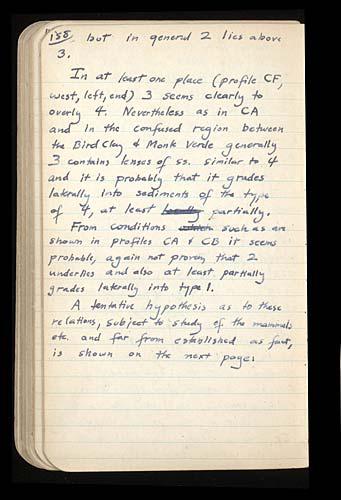 188 but in general 2 lies above
3.
In at least one place (profile CF,
west, left, end) 3 seems clearly to
overly 4. Nevertheless as in CA
and in the confused region between
the Bird Clay & Monte Verde generally
3 contains lenses of ss. similar to 4
and it is probably that it grades
laterally into sediments of the type
of 4, at least partially.
From conditions such as are
shown in profiles CA & CB it seems
probable, again not proven, that 2
underlies and also at least partially
grades laterally into type 1.
A tentative hypothesis as to these
relations, subject to study of the mammals
etc. and far from established as fact,
is shown on the next page: